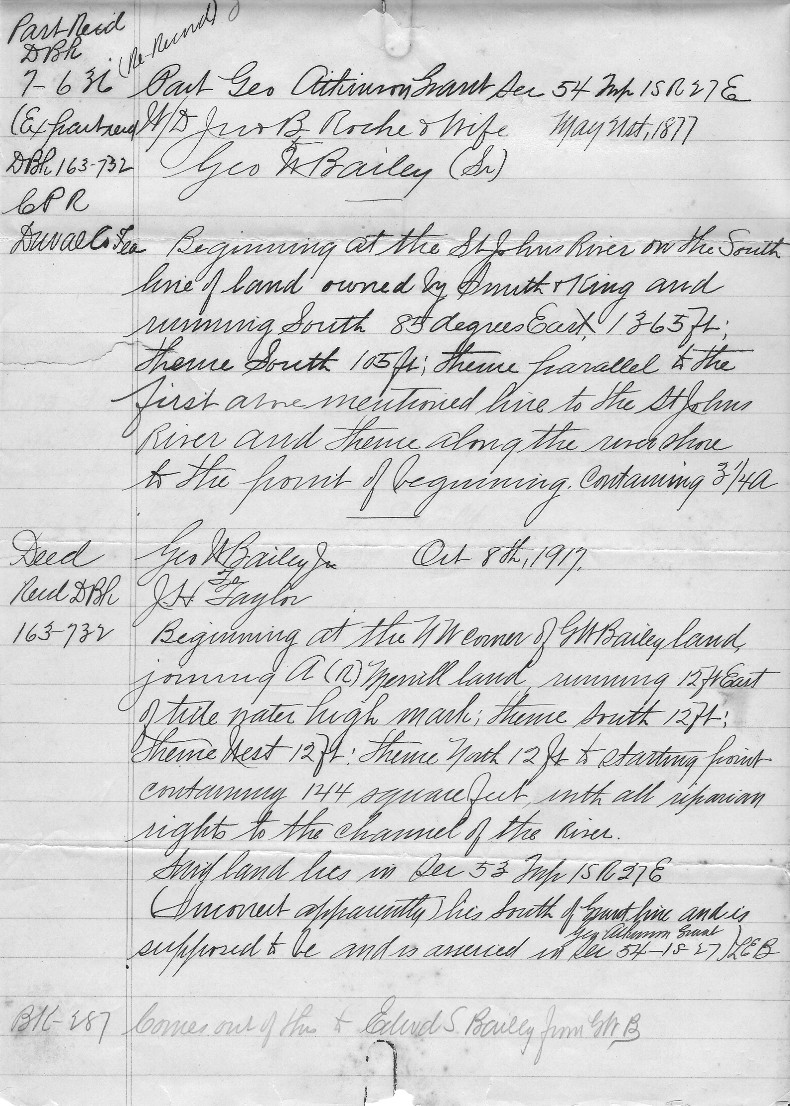 Part Recd
DBk
7-636 (Re-Record)
Part Geo Atkinson Grant Sec 54 Twp 1S R 27 E
(Ex part recd W/D Jno B. Roche & Wife May 21st, 1877
DBk 163-732 Geo W Bailey (Sr)
CPR
Duval Co Fla Beginning at the St Johns River on the South
line of land owned by Smith & King and
running South 85 degrees East, 1365 ft;
thence South 105 ft; thence parallel to the
first above mentioned line to the St Johns
River and thence along the river shore
to the point of beginning. Containing 3 1/4 A
Deed Geo W Bailey Jr Oct 8th, 1917.
To
Recd DBk J H Taylor
163-732 Beginning at the NW corner of GW Bailey land,
joining A (R) Merrill land, running 12 ft East
of tide water high mark; thence South 12 ft;
thence West 12 ft; thence North 12 ft to starting point
containing 144 square feet, with all riparian
rights to the channel of the River.
Said land lies in Sec 53 Twp 1S R 27 E
(Incorrect apparently) lies South of Grant line and is
Geo Atkinson Grant
supposed to be and is assessed in Sec 54-1S-27) LEB
BK-287 Comes out of this to Edwd S. Bailey from GWB